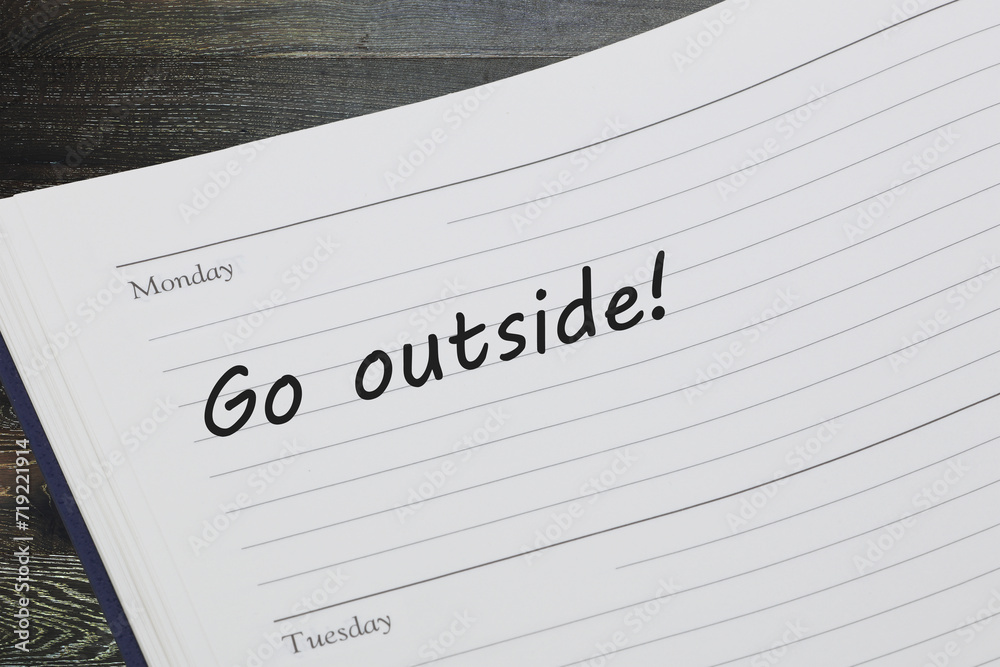 Monday
Go outside!
Tuesday
Adobe Stock | #719221914